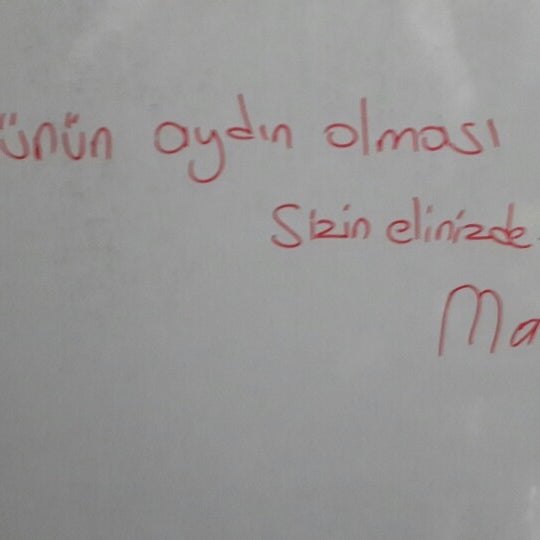 ünün aydın olması
Sizin elinizde.
Ma